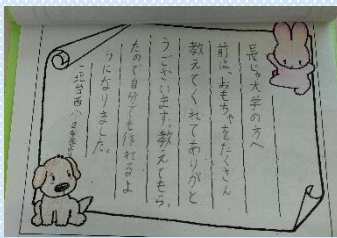 長じゅ大学の方へ
前は、おもちゃをたくさん
教えてくれてありがと
うございます。教えてもら
たので自分でも作れるよ
うになりました。